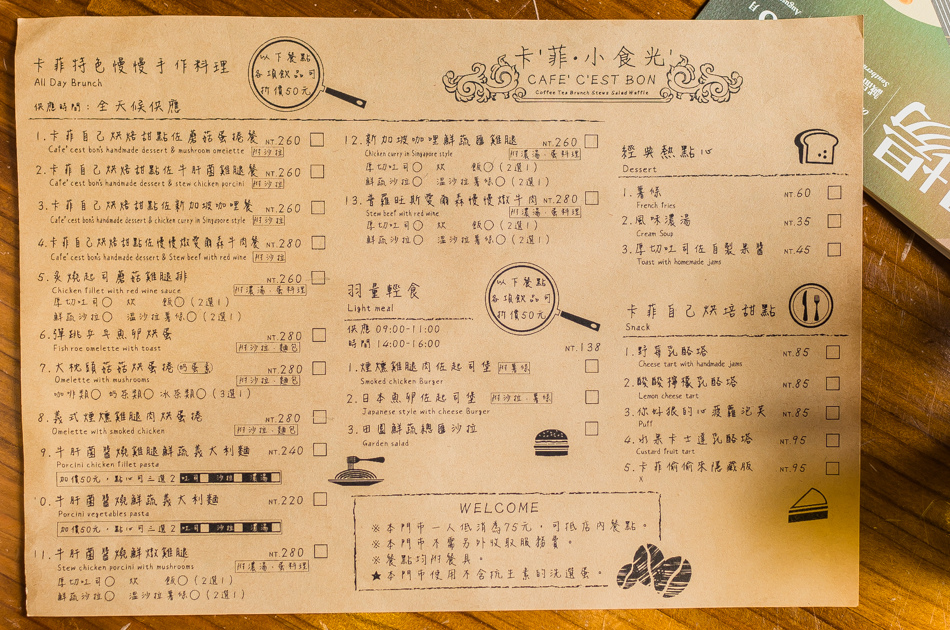 卡菲特色慢慢手作料理
All Day Brunch
供應時間：全天候供應
以下餐點
各項飲品可
折價50元
卡'菲·小食光'
CAFE' C'EST BON
Coffee Tea Brunch Stews Salad Waffle
1.卡菲自己烘焙甜點佐蘑菇蛋捲餐 NT.260
Cafe' cest bon's handmade dessert & mushroom omelette 附沙拉
2.卡菲自己烘焙甜點佐牛肝菌雞腿餐 NT.260
Cafe' cest bon's handmade dessert & stew chicken porcini 附沙拉
3.卡菲自己烘焙甜點佐新加坡咖哩餐 NT.260
Cafe' cest bon's handmade dessert & chicken curry in Singapore style 附沙拉
4.卡菲自己烘焙甜點佐慢慢燉愛爾森牛肉餐 NT.280
Cafe' cest bon's handmade dessert & Stew beef with red wine 附沙拉
5.炙燒起司蘑菇雞腿排 NT.260
Chicken fillet with red wine sauce 附濃湯·蛋料理
厚切吐司○ 炊 飯○（2選1）
鮮蔬沙拉○ 溫沙拉薯條○（2選1）
6.彈跳乒乓魚卵烘蛋 NT.280
Fish roe omelette with toast 附沙拉·麵包
7.大枕頭菇菇烘蛋捲(奶蛋素) NT.280
Omelette with mushrooms 附沙拉·麵包
咖啡類○ 奶茶類○ 冰茶類○（3選1）
8.義式煙燻雞腿肉烘蛋捲 NT.280
Omelette with smoked chicken 附沙拉·麵包
9.牛肝菌醬燒雞腿鮮蔬義大利麵 NT.240
Porcini chicken fillet pasta
加價50元，點心可三選2 吐司 沙拉 濃湯
0.牛肝菌醬燒鮮蔬義大利麵 NT.220
Porcini vegetables pasta
加價50元，點心可三選2 吐司 沙拉 濃湯
11.牛肝菌醬燒鮮燉雞腿 NT.280
Stew chicken porcini with mushrooms 附濃湯·蛋料理
厚切吐司○ 炊 飯○（2選1）
鮮蔬沙拉○ 溫沙拉薯條○（2選1）
12.新加坡咖哩鮮蔬匯雞腿 NT.260
Chicken curry in Singapore style 附濃湯·蛋料理
厚切吐司○ 炊 飯○（2選1）
鮮蔬沙拉○ 溫沙拉薯條○（2選1）
13.普羅旺斯愛爾森慢燉牛肉 NT.280
Stew beef with red wine 附濃湯·蛋料理
厚切吐司○ 炊 飯○（2選1）
鮮蔬沙拉○ 溫沙拉薯條○（2選1）
羽量輕食
Light meal
以下餐點
各項飲品可
折價50元
供應 09:00-11:00
時間 14:00-16:00
NT.138
1.煙燻雞腿肉佐起司堡 附薯條
Smoked chicken Burger
2.日本魚卵佐起司堡 附沙拉·薯條
Japanese style with cheese Burger
3.田園鮮蔬總匯沙拉
Garden salad
WELCOME
※本門市一人低消為75元，可抵店內餐點。
※本門市不需另外收取服務費。
※餐點均附餐具。
★本門市使用不含抗生素的洗選蛋。
經典熱點心
Dessert
1.薯條 NT.60
French fries
2.風味濃湯 NT.35
Cream Soup
3.厚切吐司佐自製果醬 NT.45
Toast with homemade jams
卡菲自己烘培甜點
Snack
1.野莓乳酪塔 NT.85
Cheese tart with handmade jams
2.酸酸檸檬乳酪塔 NT.85
Lemon cheese tart
3.你好狠的心菠蘿泡芙 NT.85
Puff
4.水果卡士達乳酪塔 NT.95
Custard fruit tart
5.卡菲偷偷來隱藏版 NT.95
X